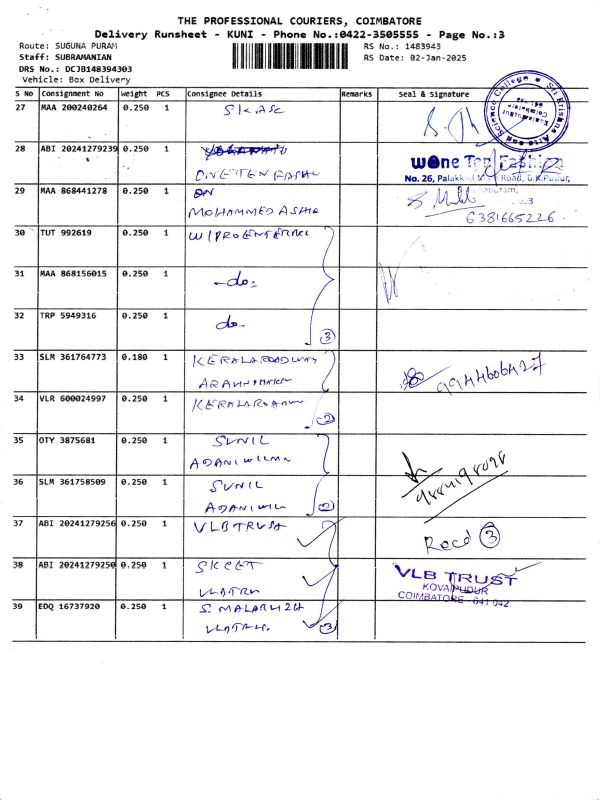 THE PROFESSIONAL COURIERS, COIMBATORE
Delivery Runsheet - KUNI - Phone No.:0422-3505555 - Page No.:3
Route: SUGUNA PURAM
RS No.: 1483943
Staff: SUBRAMANIAN
RS Date: 02-Jan-2025
DRS No.: DCJB148394303
Vehicle: Box Delivery
S No Consignment No Weight PCS Consignee Details Remarks Seal & Signature
27 MAA 200240264 0.250 1 SKASC
Sri Krishna Arts and Science College
28 ABI 20241279239 0.250 1
ONE TEN FASHI
WOne Ten Fashion
No. 26, Palakkad Main Road, B.K.Pudur,
29 MAA 868441278 0.250 1
MOHAMMED ASHE
6381665226
30 TUT 992619 0.250 1 WIPRO ENTERPRI
31 MAA 868156015 0.250 1 -do-
32 TRP 5949316 0.250 1 do-
3
33 SLM 361764773 0.180 1 KERALAROADWAY
9944606427
34 VLR 600024997 0.250 1 KERALAROADW
2
35 OTY 3875681 0.250 1 SUNIL
ADANI WILMA
36 SLM 361758509 0.250 1 SUNIL
ADANI WIL
2
37 ABI 20241279256 0.250 1 VLB TRUST
Recd 3
38 ABI 20241279250 0.250 1 SKCET
VLBTRU
VLB TRUST
KOVAIPUDUR
COIMBATORE - 641 042
39 EDQ 16737920 0.250 1 S. MALARVIZH
VLBTRU.
3